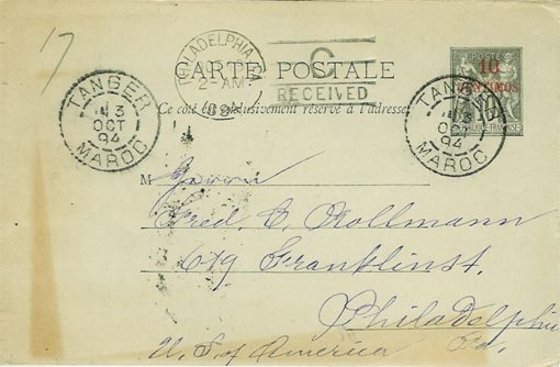 17
PHILADELPHIA, PA
2-AM
C
RECEIVED
CARTE POSTALE
Ce côté est exclusivement réservé à l'adresse
TANGER
3
OCT
94
MAROC
POSTE
10
CENTIMOS
10
TANGER
3
OCT
94
MAROC
M Herrn
Fred. C. Kollmann
619 Franklinst.
Philadelphia
U. S. of America Pa.